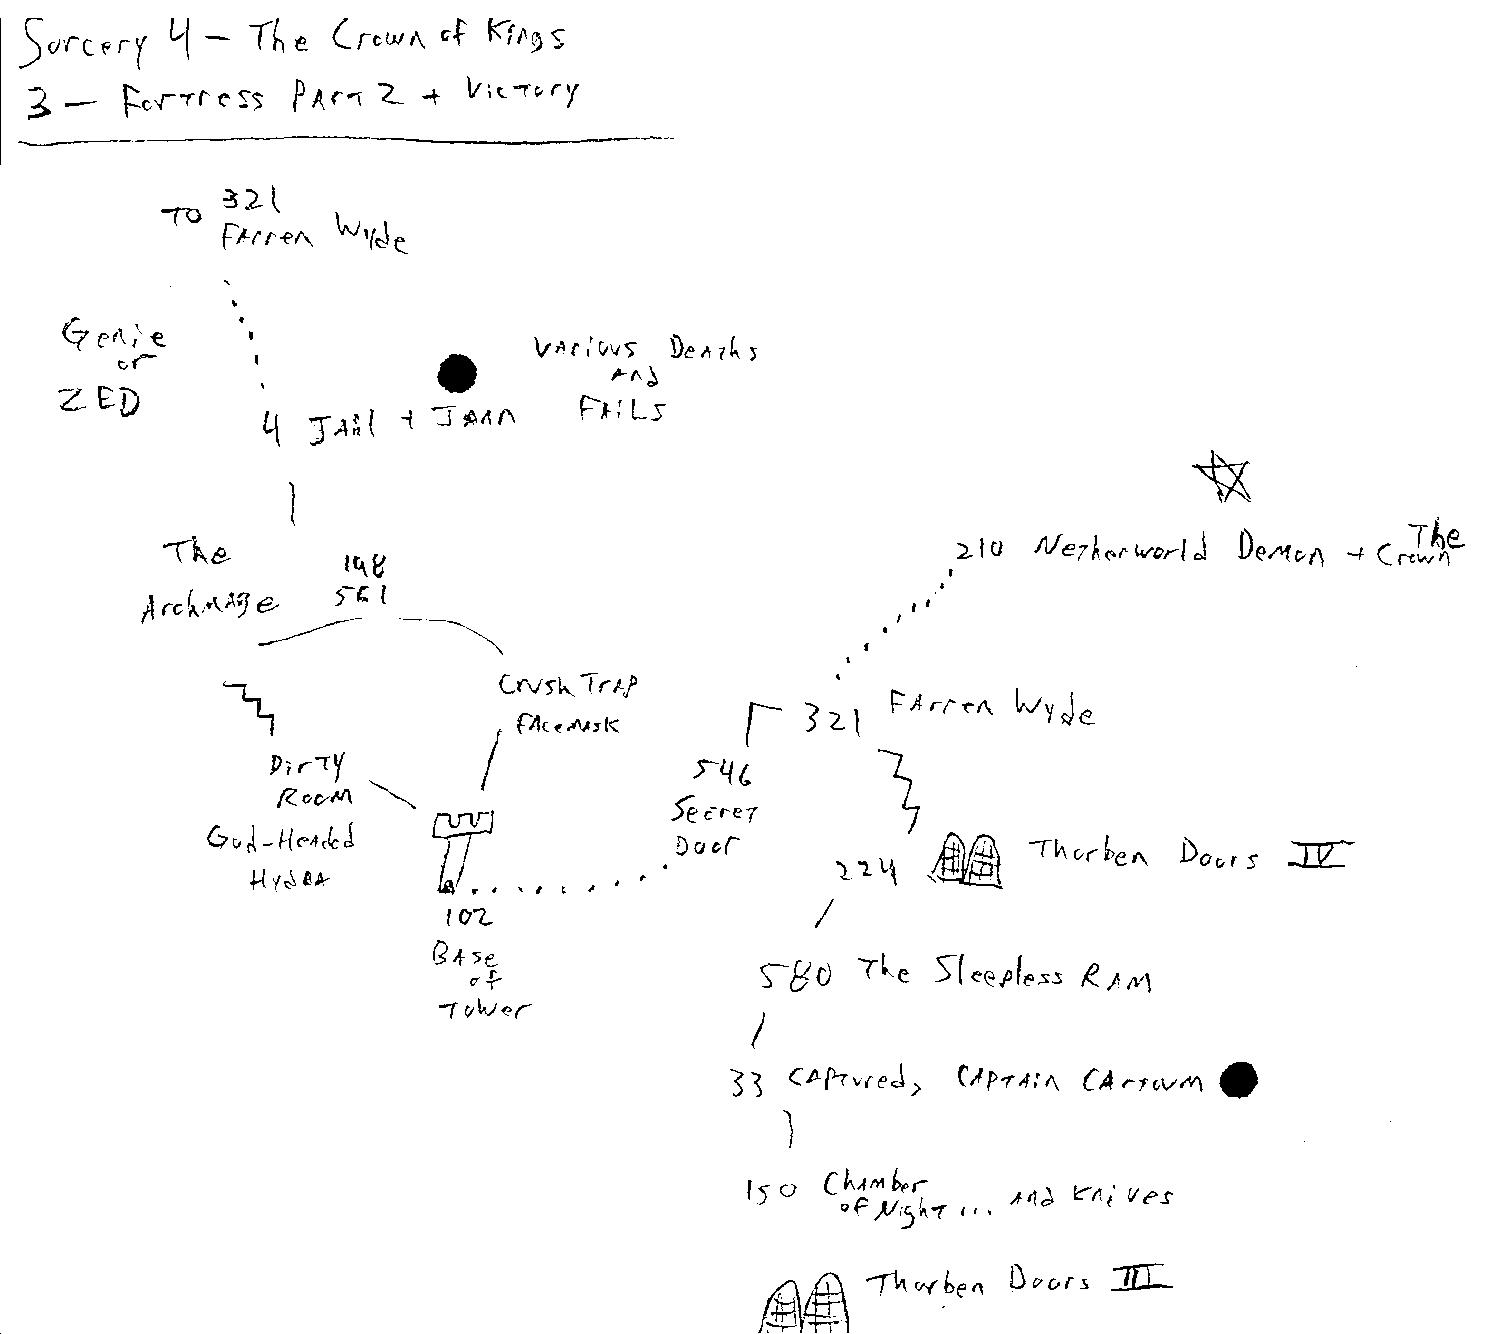 Sorcery 4 – The Crown of Kings
3 – Fortress Part 2 + Victory
To 321
Farren Wyde
Genie
or
ZED
Various Deaths
and
Fails
4 Jail + Jann
The
Archmage
198
561
210 Netherworld Demon + The Crown
Crush Trap
Facemask
321 Farren Wyde
Dirty
Room
God-Headed
Hydra
546
Secret
Door
102
Base
of
Tower
224 Thorben Doors IV
580 The Sleepless Ram
33 Captured, Captain Cartoum
150 Chamber
of Night ... and Knives
Thorben Doors III